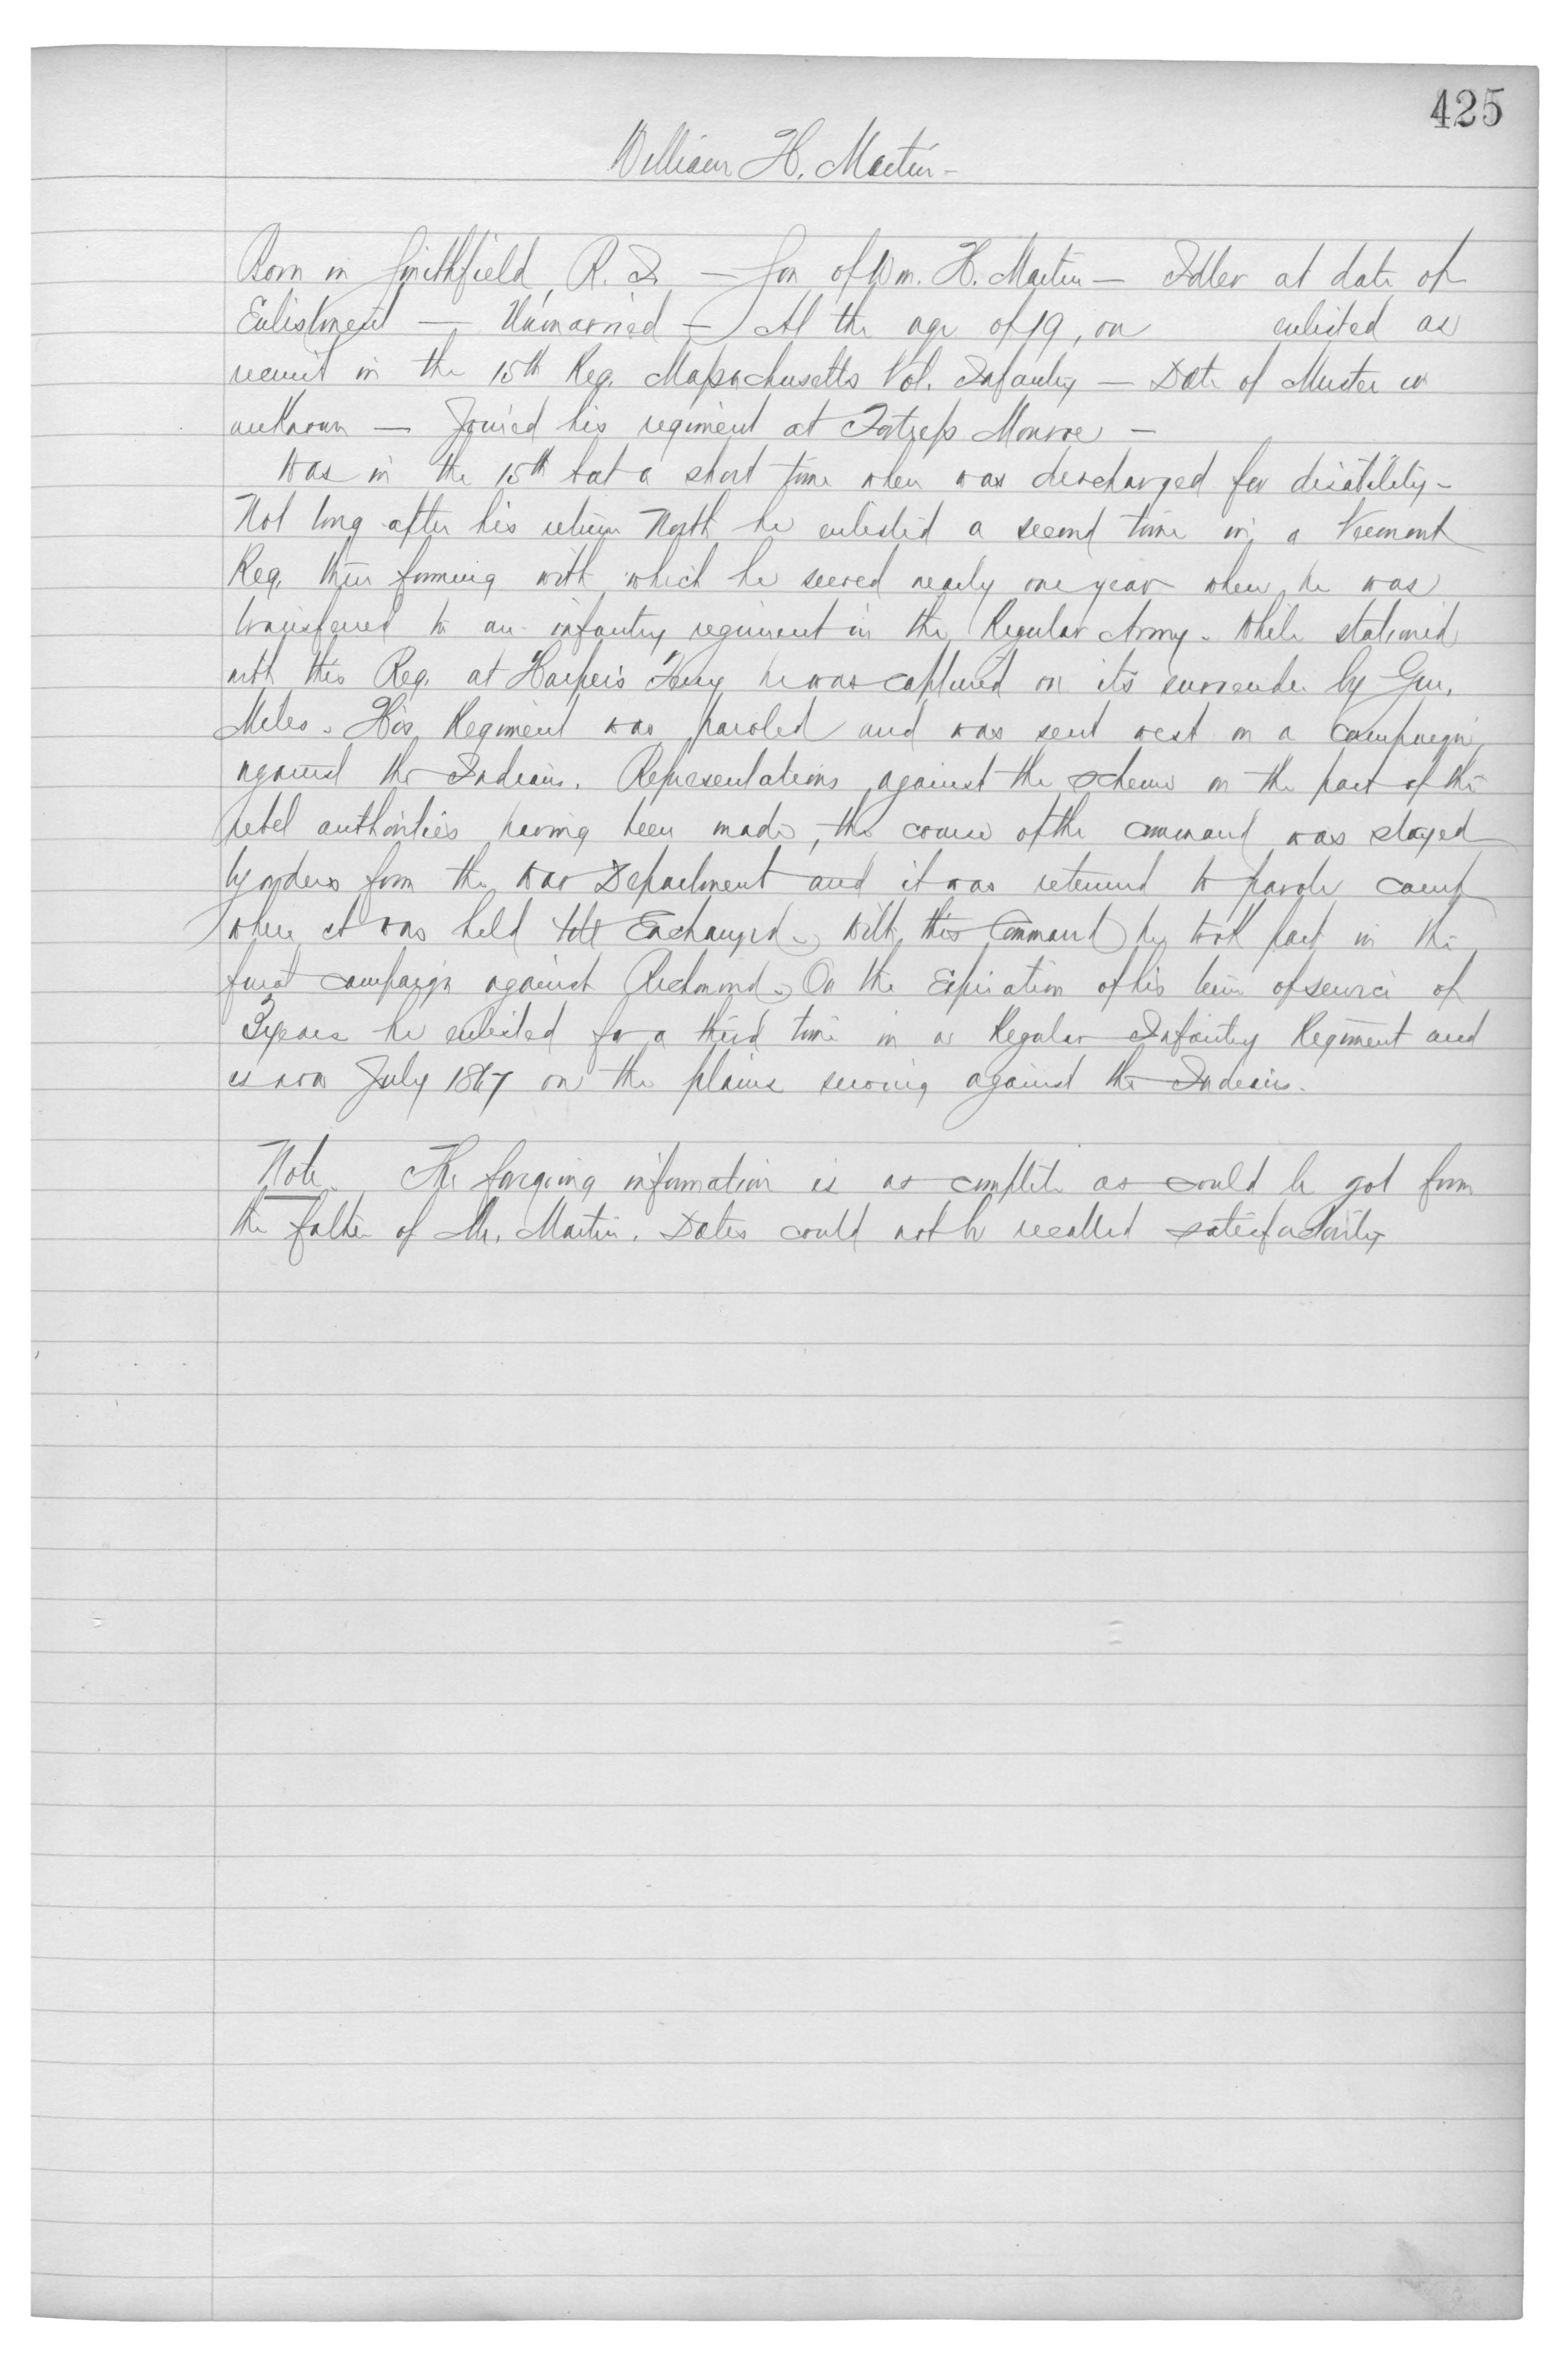 425
William H. Martin -
Born in Smithfield, R. I. — Son of Wm. H. Martin — Idler at date of
Enlistment — Unmarried — At the age of 19, on enlisted as
recruit in the 15th Reg. Massachusetts Vol. Infantry — Date of Muster in
unknown — Joined his regiment at Fortress Monroe —
Was in the 15th but a short time when was discharged for disability -
Not long after his return North he enlisted a second time in a Vermont
Reg. then forming with which he served nearly one year when he was
transferred to an infantry regiment in the Regular Army. While stationed
with this Reg. at Harper's Ferry he was captured on its surrender by Gen.
Miles. His Regiment was paroled and was sent west on a campaign
against the Indians. Representations against the scheme on the part of the
rebel authorities having been made, the course of the command was stayed
by orders from the War Department and it was returned to parole camp
where it was held till Exchanged. With this Command he took part in the
final campaign against Richmond. On the Expiration of his term of service of
3 years he enlisted for a third time in a Regular Infantry Regiment and
is now July 1867 on the plains serving against the Indians.
Note. The forgoing information is as complete as could be got from
the father of Mr. Martin. Dates could not be recalled satisfactorily